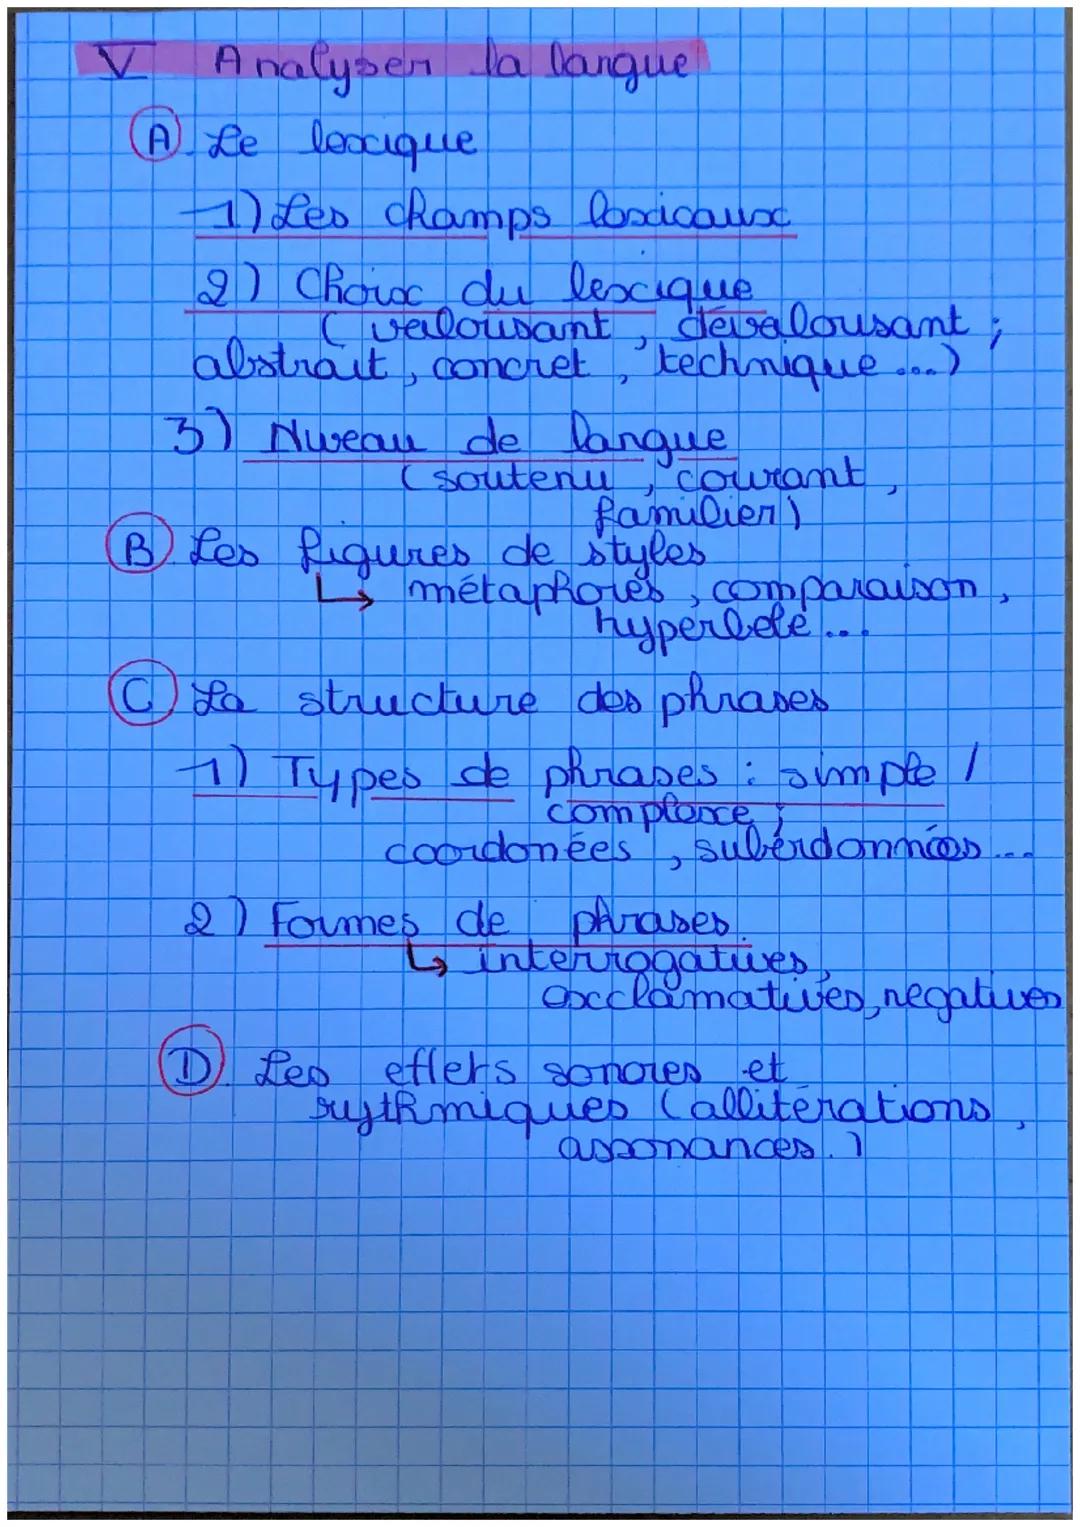 V Analyser la langue
A Le lexique
1) Les champs lexicaux
2) Choix du lexique
(valorisant, dévalorisant ;
abstrait, concret, technique...)
3) Niveau de langue
(soutenu, courant,
familier)
B Les figures de styles
↳ métaphores, comparaison,
hyperbole...
C La structure des phrases
1) Types de phrases : simple /
complexe ;
coordonées, subordonnées...
2) Formes de phrases.
↳ interrogatives,
exclamatives, negatives
D Les effets sonores et
rythmiques (allitérations,
assonances.)